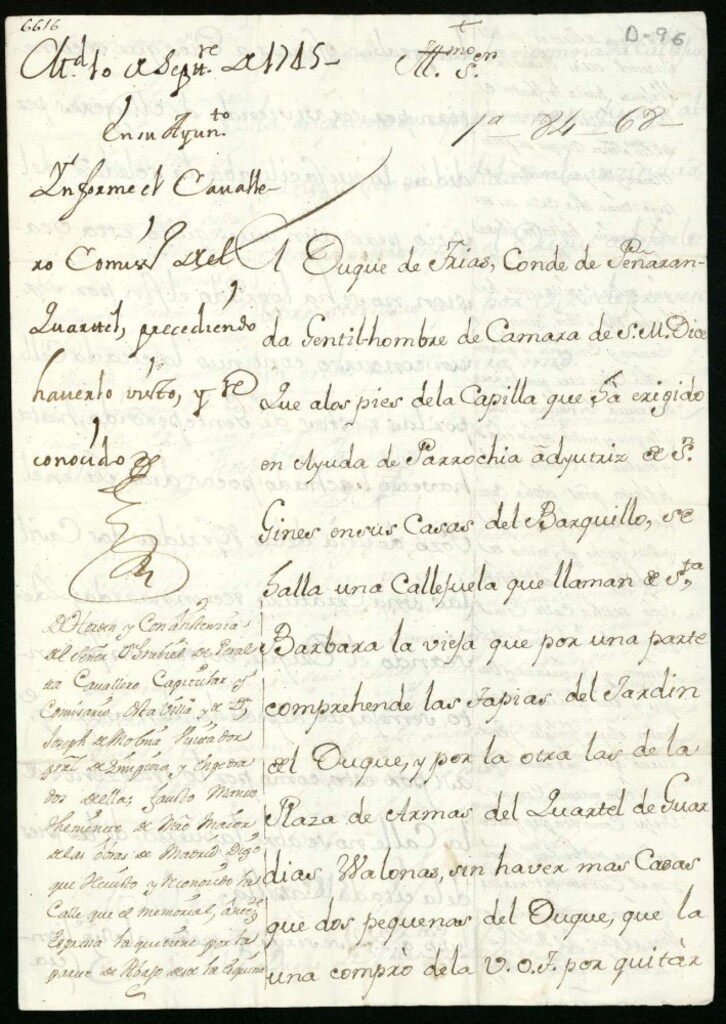 6616
D-96
Md. 10 de Septre. de 1745
Illmo. Sen.
En su Ayunto.
1a - 84 - 68
Ynforme el Cavalle-
ro Comisro. del
Quarttel, precediendo
haverlo visto, y re
conocido
El Duque de Frias, Conde de Peñaran-
da Gentilhombre de Camara de S.M. Dice
Que alos pies dela Capilla que hà erigido
en Ayuda de Parrochia adjutriz de Sn.
Gines en sus Casas del Barquillo, se
halla una Callejuela que llaman de Sta.
Barbara la vieja que por una parte
comprehende las tapias del Jardin
del Duque, y por la otra las de la
Plaza de Armas del Quartel de Guar
dias Walonas, sin haver mas Casas
que dos pequeñas del Duque, que la
una comprò dela V.O.T. por quitàr
De Horden y Con asistencia
del Señor Dn. Gabriel de Peral
ta Cavallero Capitular y
Comisario desta Villa y de Dn.
Joseph de Molina Procurador
gral. de
dos de ella; Fausto Manso
themiente de Mro Maior
de las obras de Madrid Digo
que He visto y Reconozido la
Calle que el memorial, antezte.
Espresa la que tiene por la
parte de Abajo desde la esquina